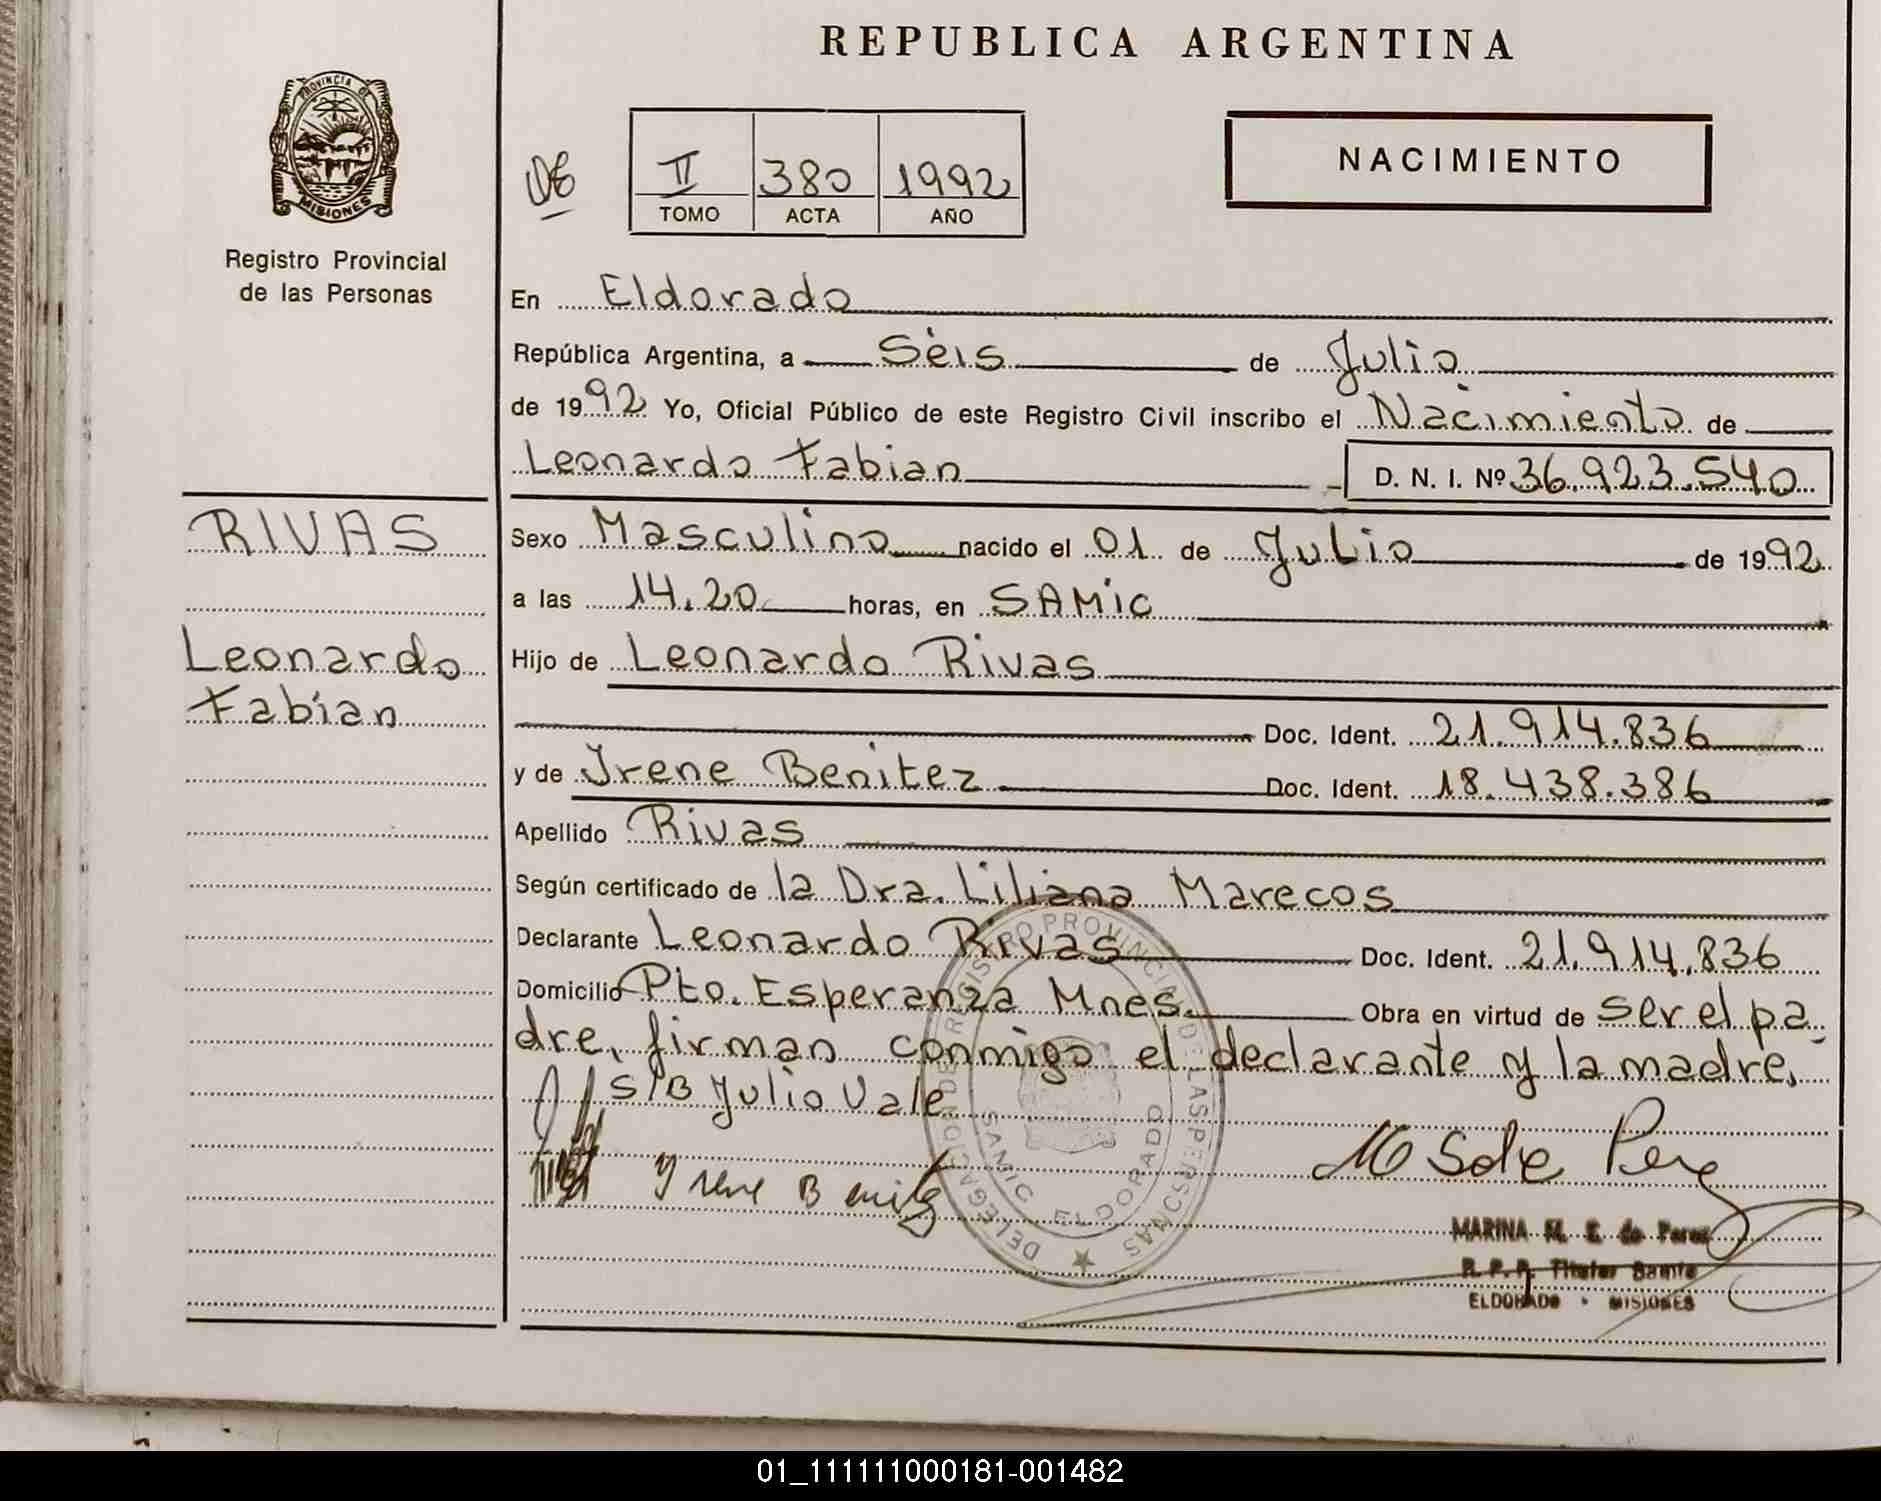 REPUBLICA ARGENTINA
PROVINCIA DE
MISIONES
Registro Provincial
de las Personas
II 380 1992
TOMO ACTA AÑO
NACIMIENTO
En Eldorado
República Argentina, a Seis de Julio
de 1992 Yo, Oficial Público de este Registro Civil inscribo el Nacimiento de
Leonardo Fabian D. N. I. Nº 36.923.540
RIVAS
Leonardo
Fabian
Sexo Masculino nacido el 01 de Julio de 1992
a las 14.20 horas, en SAMiC
Hijo de Leonardo Rivas
Doc. Ident. 21.914.836
y de Irene Benitez Doc. Ident. 18.438.386
Apellido Rivas
Según certificado de la Dra. Liliana Marecos
Declarante Leonardo Rivas Doc. Ident. 21.914.836
Domicilio Pto. Esperanza Mnes. Obra en virtud de ser el pa
dre, firman conmigo el declarante y la madre.
S/B Julio Vale
Irene Benitez
DELEGACION DE REGISTRO PROVINCIAL DE LAS PERSONAS
SAMIC ELDORADO
MARINA M. S. de Perez
R. P. P. Titular Samic
ELDORADO - MISIONES
01_111111000181-001482